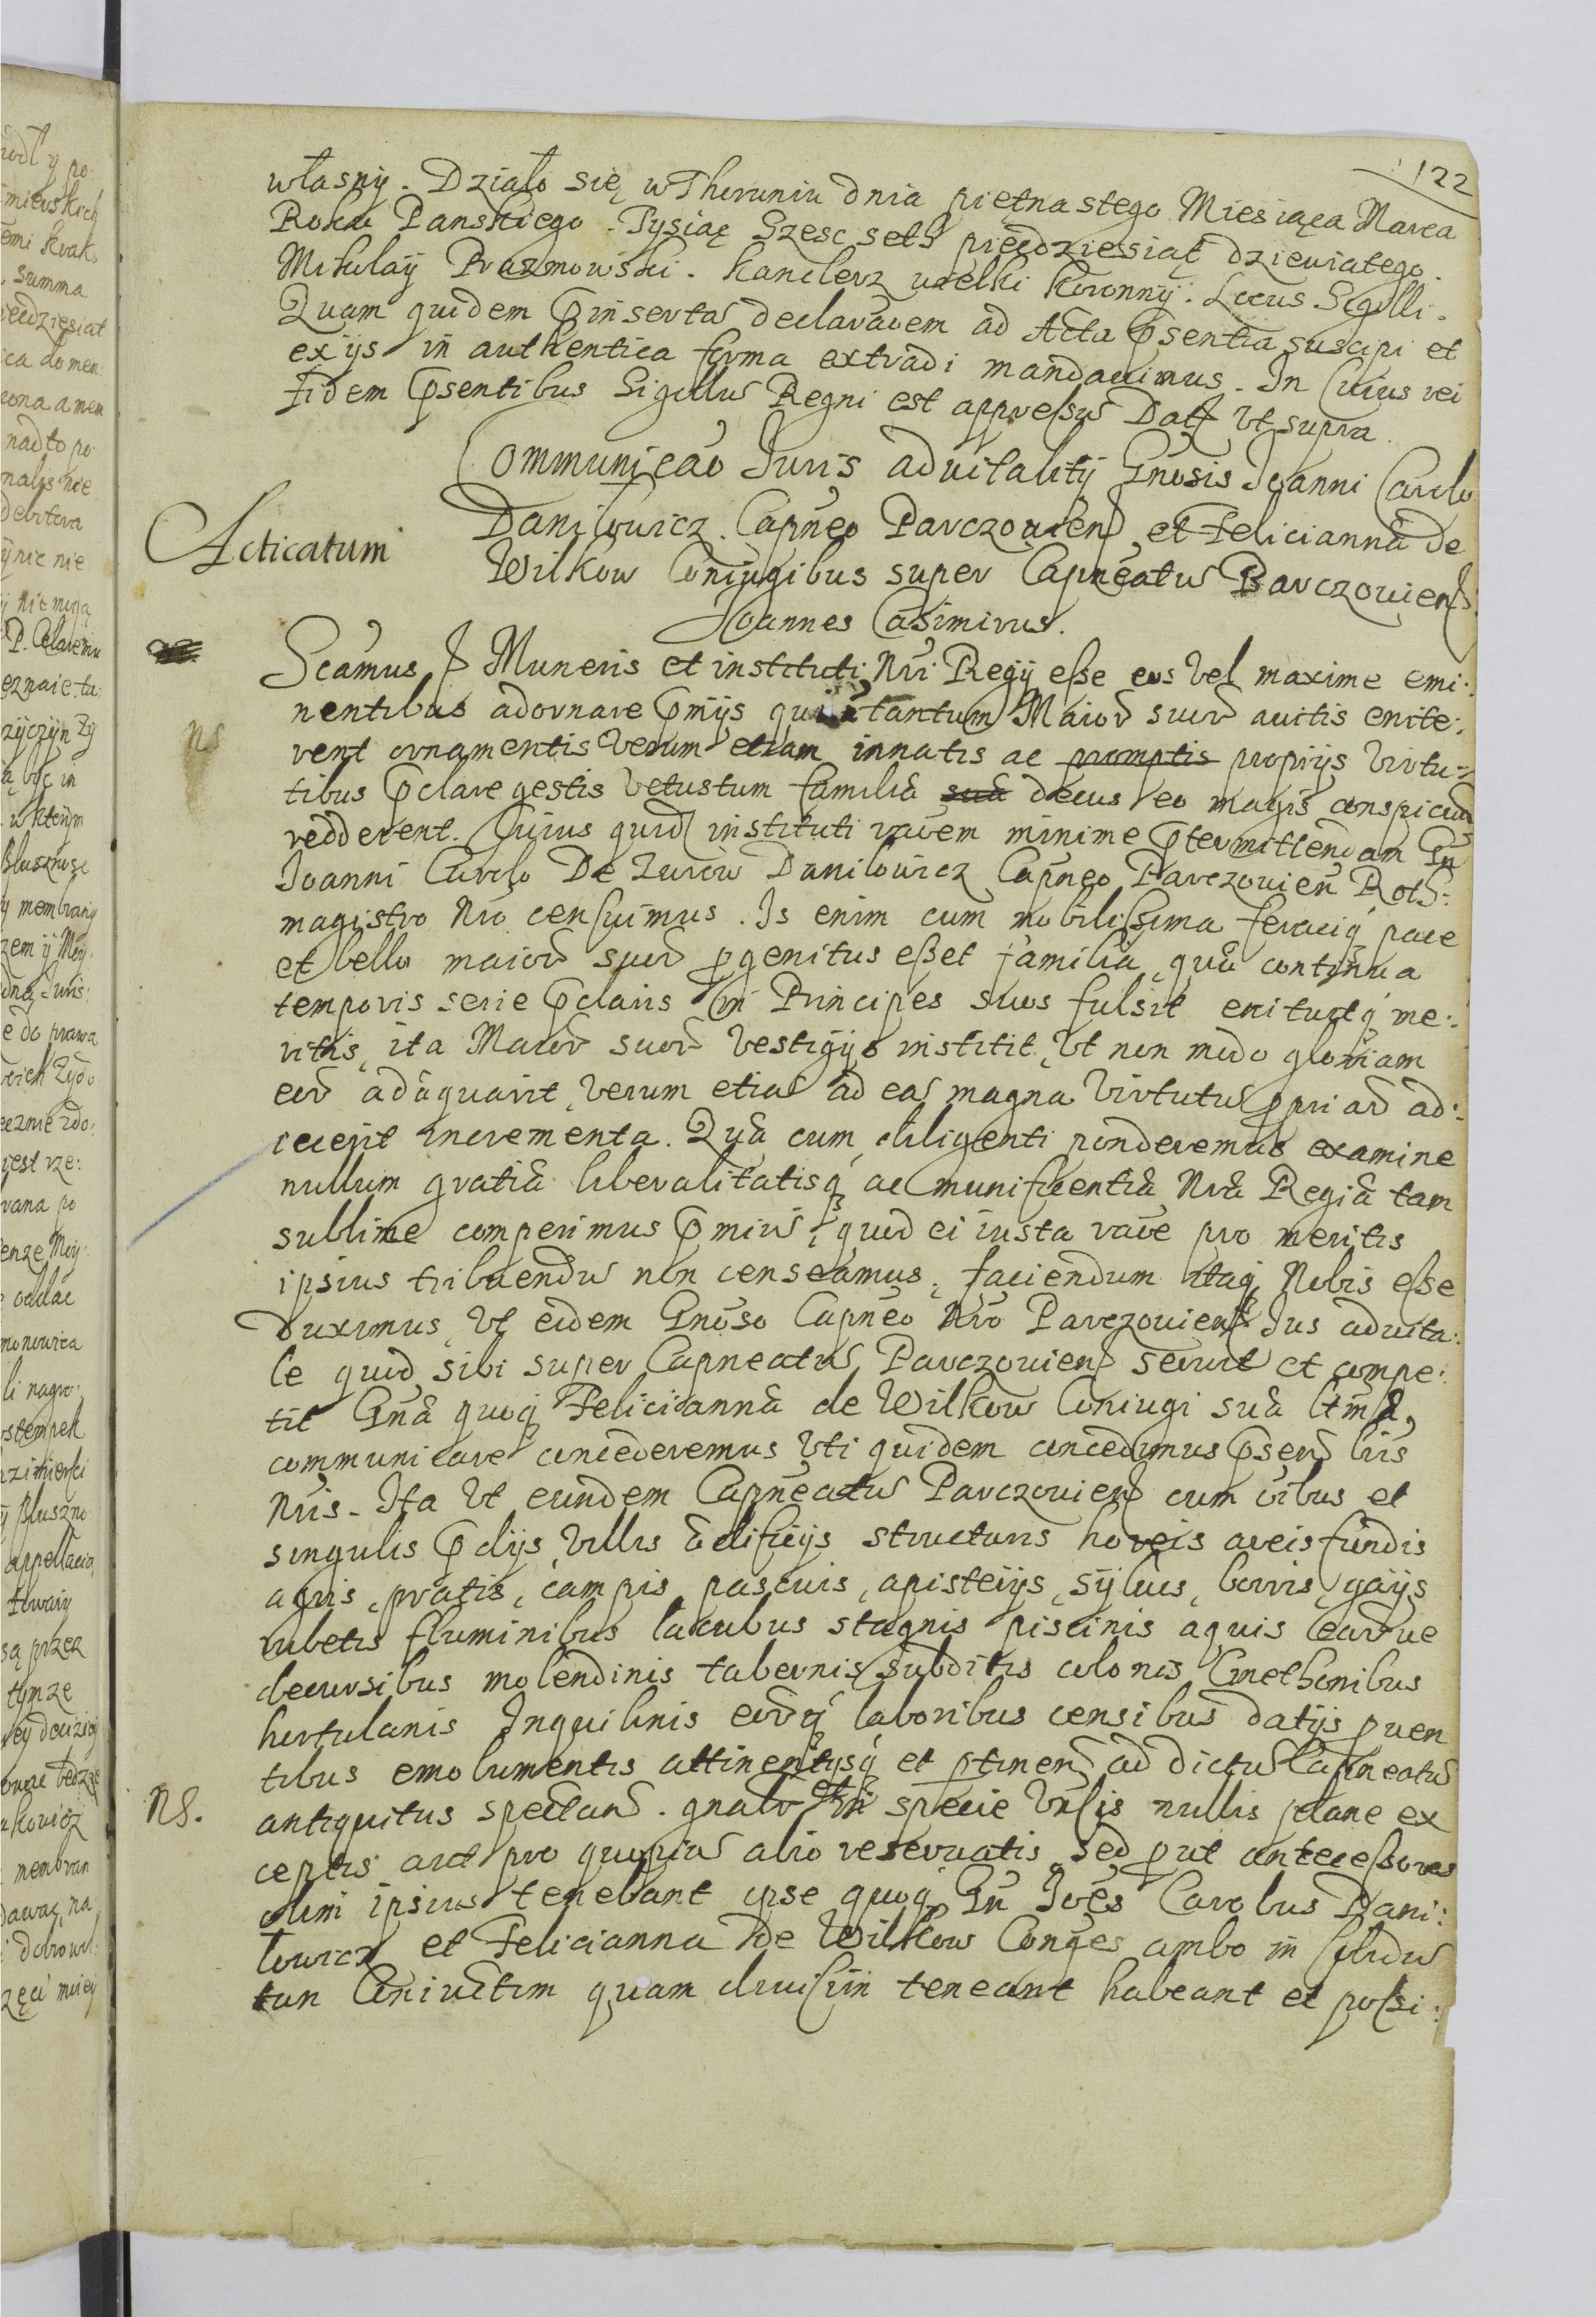 122
własnÿ. Działo się w Thoruniu dnia piętnastego Miesiąca Marca
Roku Panskiego. Tysiąc Szesc seth piędziesiąt dziewiatego.
Mikulaÿ Prazmowski. Kanclerz wielki Koronnÿ. Locus Sigilli.
Quam quidem insertā declaraōem ad Acta pñsentia suscipi et
ex ijs in authentica forma extradi mandauimus. In Cuius rei
fidem pñsentibus Sigillū Regni est appressū Datt Vt supra.
Communicaō Juris aduitalitij Gnosis Joanni Carolo
Daniłowicz Capneo Parczouien et Feliciannā de
Acticatum
Wilkow Coniugibus super Capneatū Parczouien.
Joannes Casimirus.
Scamus Muneris et instituti Nri Regij esse eos Vel maxime emi:
nentibus adornare pmijs qui tantum Maiorū suorū auitis enite:
NS
rent ornamentis Verum etiam innatis ac promptis proprijs Virtu:
tibus pclare gestis Vetustum familiā suā decus eo magis conspicuū
redderent. Cuius quid instituti raōem minime ptermittendam Gn
Joanni Carolo De Zurow Daniłowicz Capneo Parczouien Roth:
magistro Nro censuimus. Is enim cum nobilissima feraciq pace
et bello maiorū suorū pgenitus esset familia, quā continua
temporis serie pclaris in Principes suos fulsit enituitq me:
ritis, ita Maiorū suorū Vestigijs institit, Vt non modo gloriam
eorū adāquarit, Verum etiā ad eā magna Virtutū ppriarū ad:
iecerit incrementa. Quā cum diligenti ponderemus examine
nullum gratiā liberalitatisq ac munificentiā Nrā Regiā tam
sublime comperimus pmiū, quod ei iusta raōe pro meritis
ipsius tribuendū non censeamus, faciendum itaq Nobis esse
Duximus, Vt eidem Gnoso Capneo Nro Parczouien Jus aduita:
le quod sibi super Capneatū Parczouien seruit et compe:
tit Gnā quoq Feliciannā de Wilkow Coniugi suā
communicare concederemus Vti quidem concedimus pñsen lris
Nris. Ita Vt eundem Capneatū Parczouien cum oibus et
singulis pdijs, Villis ādificijs structuris horreis areis fundis
agris, pratis, campis pascuis, apisterijs, sÿluis, borris, gaÿs
rubetis fluminibus lacubus stagnis piscinis aquis earūue
decursibus molendinis tabernis subditis colonis Cmethonibus
hortulanis Inquilinis eorūq laboribus censibus datijs prouen
tibus emolumentis attinentijsq et ptinen ad dictū Capneatū
NS.
antiquitus spectan. gnalr et in specie Vnsis nullis plane ex
ceptis aut pro quopiā alio reseruatis, Sed put antecessores
olim ipsius tenebant ipse quoq Gn Joēs Carolus Dani:
łowicz et Felicianna de Wilkow Conges ambo in solidū
tan Coniūctim quam diuisim teneant habeant et possi: